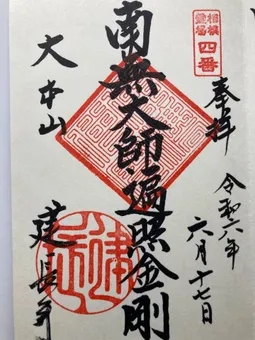 相模
霊場
四番
奉拝
令和六年
六月十七日
南無大師遍照金剛
大本山
建長寺